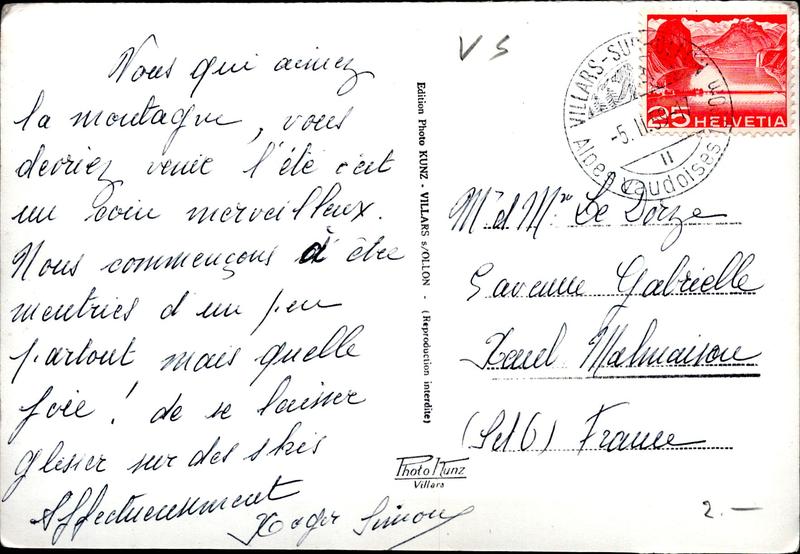 Vous qui aimez
la montagne, vous
devriez venir l'été c'est
un coin merveilleux.
Nous commençons à être
meutries d'un peu
partout mais quelle
joie ! de se laisser
glisser sur des skis
Affectueusement
Roger Simon
Edition Photo KUNZ - VILLARS s/OLLON - (Reproduction interdite)
Photo Kunz
Villars
VS
VILLARS-SUR-
-5.II.
Alpes vaudoises
II
25 HELVETIA
Mr et Mme Le Dorze
Gabrielle
Rueil Malmaison
(S et O) France
2.—